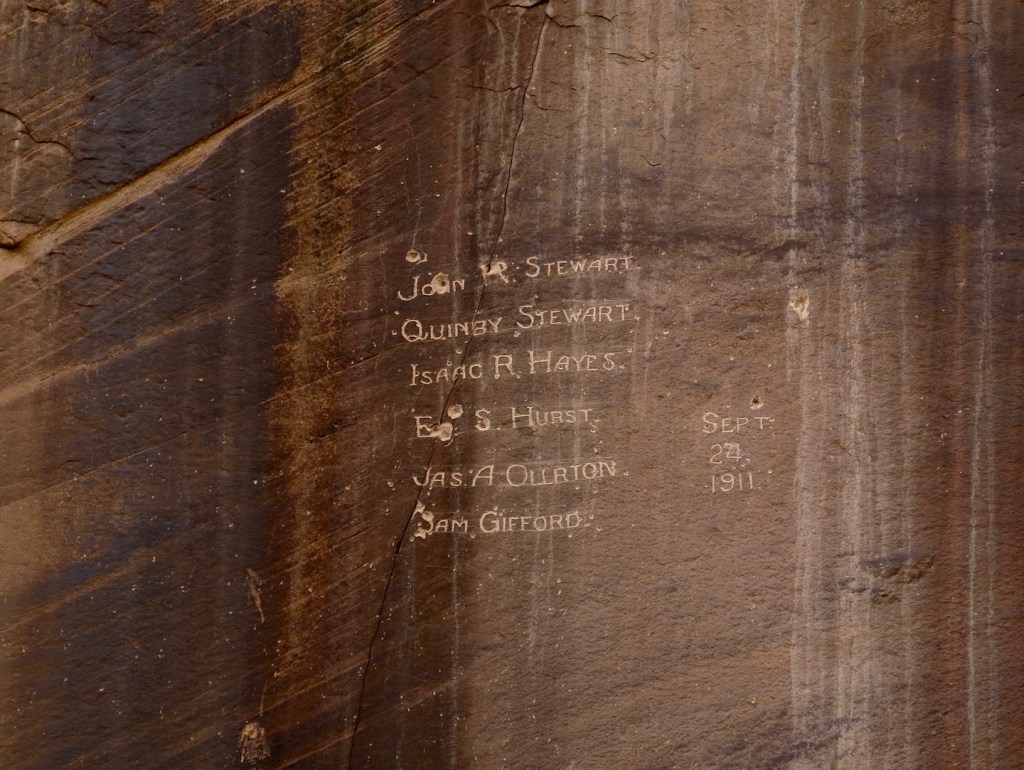 John R. Stewart.
Quinby Stewart.
Isaac R. Hayes.
E. S. Hurst.
Jas. A Ollrton.
Sam Gifford.
Sept.
24.
1911.